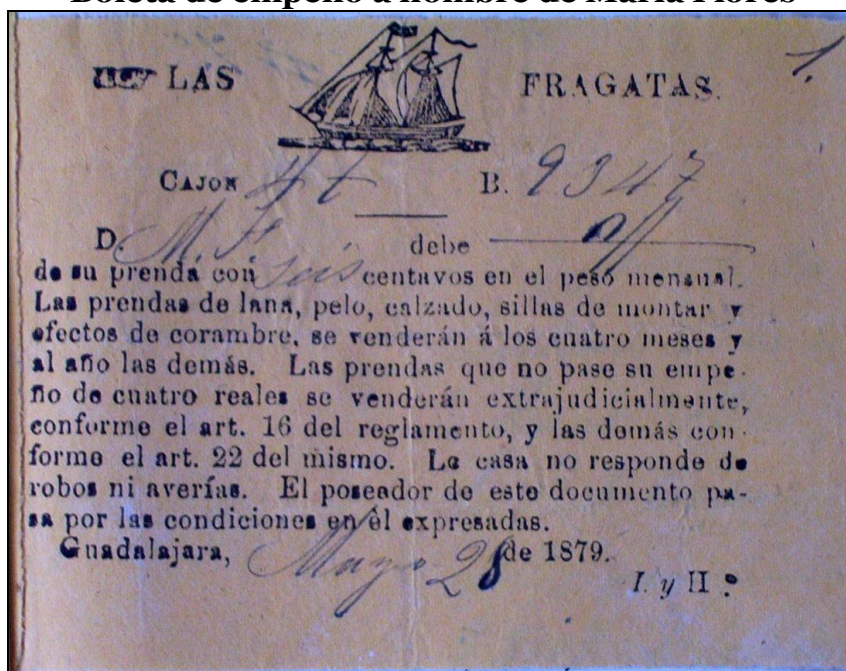 Boleta de empeño a nombre de María Flores
1.
LAS FRAGATAS.
CAJON 4t B. 9347
D. M. F. debe
de su prenda con seis centavos en el peso mensual.
Las prendas de lana, pelo, calzado, sillas de montar y
efectos de corambre, se venderán á los cuatro meses y
al año las demás. Las prendas que no pase su empe-
ño de cuatro reales se venderán extrajudicialmente,
conforme el art. 16 del reglamento, y las demás con-
forme el art. 22 del mismo. La casa no responde de
robos ni averías. El poseador de este documento pa-
sa por las condiciones en él expresadas.
Guadalajara, Mayo 28 de 1879.
I. y H.